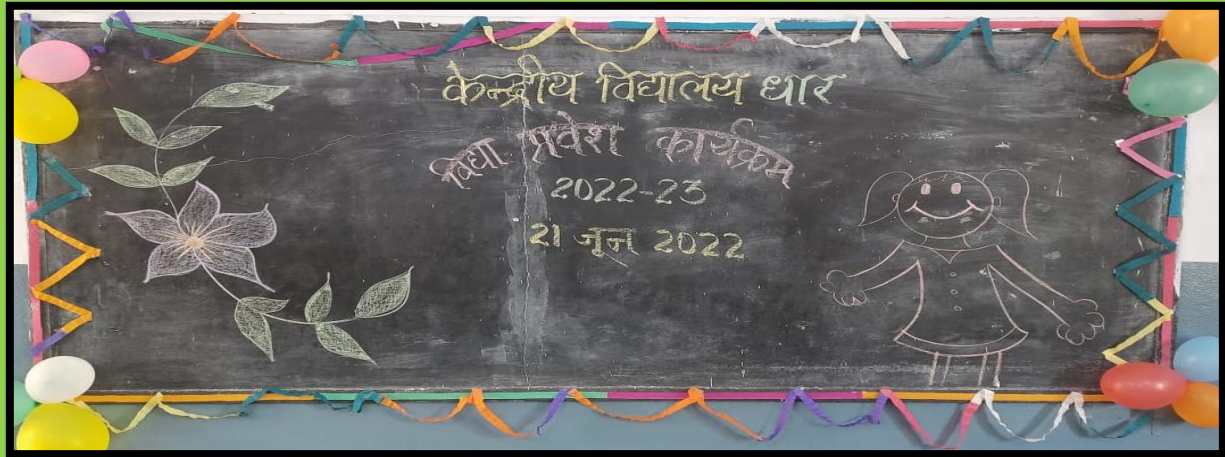 केन्द्रीय विद्यालय धार
विद्या प्रवेश कार्यक्रम
2022-23
21 जून 2022